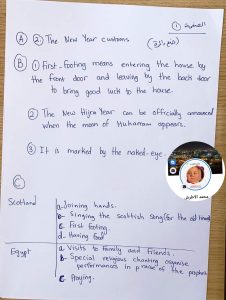 ①
Ⓐ ② The New Year customs.
Ⓑ ① First-footing means entering the house by
the front door and leaving by the back door
to bring good luck to the house.
② The New Hijra Year can be officially announced
when the moon of Muharram appears.
③ It is marked by the naked-eye.
Ⓒ
Scotland
a- Joining hands.
b- Singing the scottish song (for the old times)
c. First footing.
d. Having food
Egypt
a. Visits to family and friends.
b- Special religious chanting organise
performances in praise of the prophet
c. Praying.